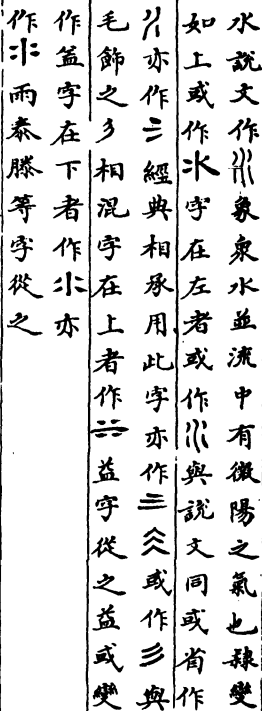 水說文作𣱱象衆水並流中有微陽之氣也隸變
如上或作氺字在左者或作〣與說文同或省作
亦作二經典相承用此字亦作三或作彡與
毛飾之彡相混字在上者作益字從之益或變
作盖字在下者作氺亦
作氺雨泰滕等字從之